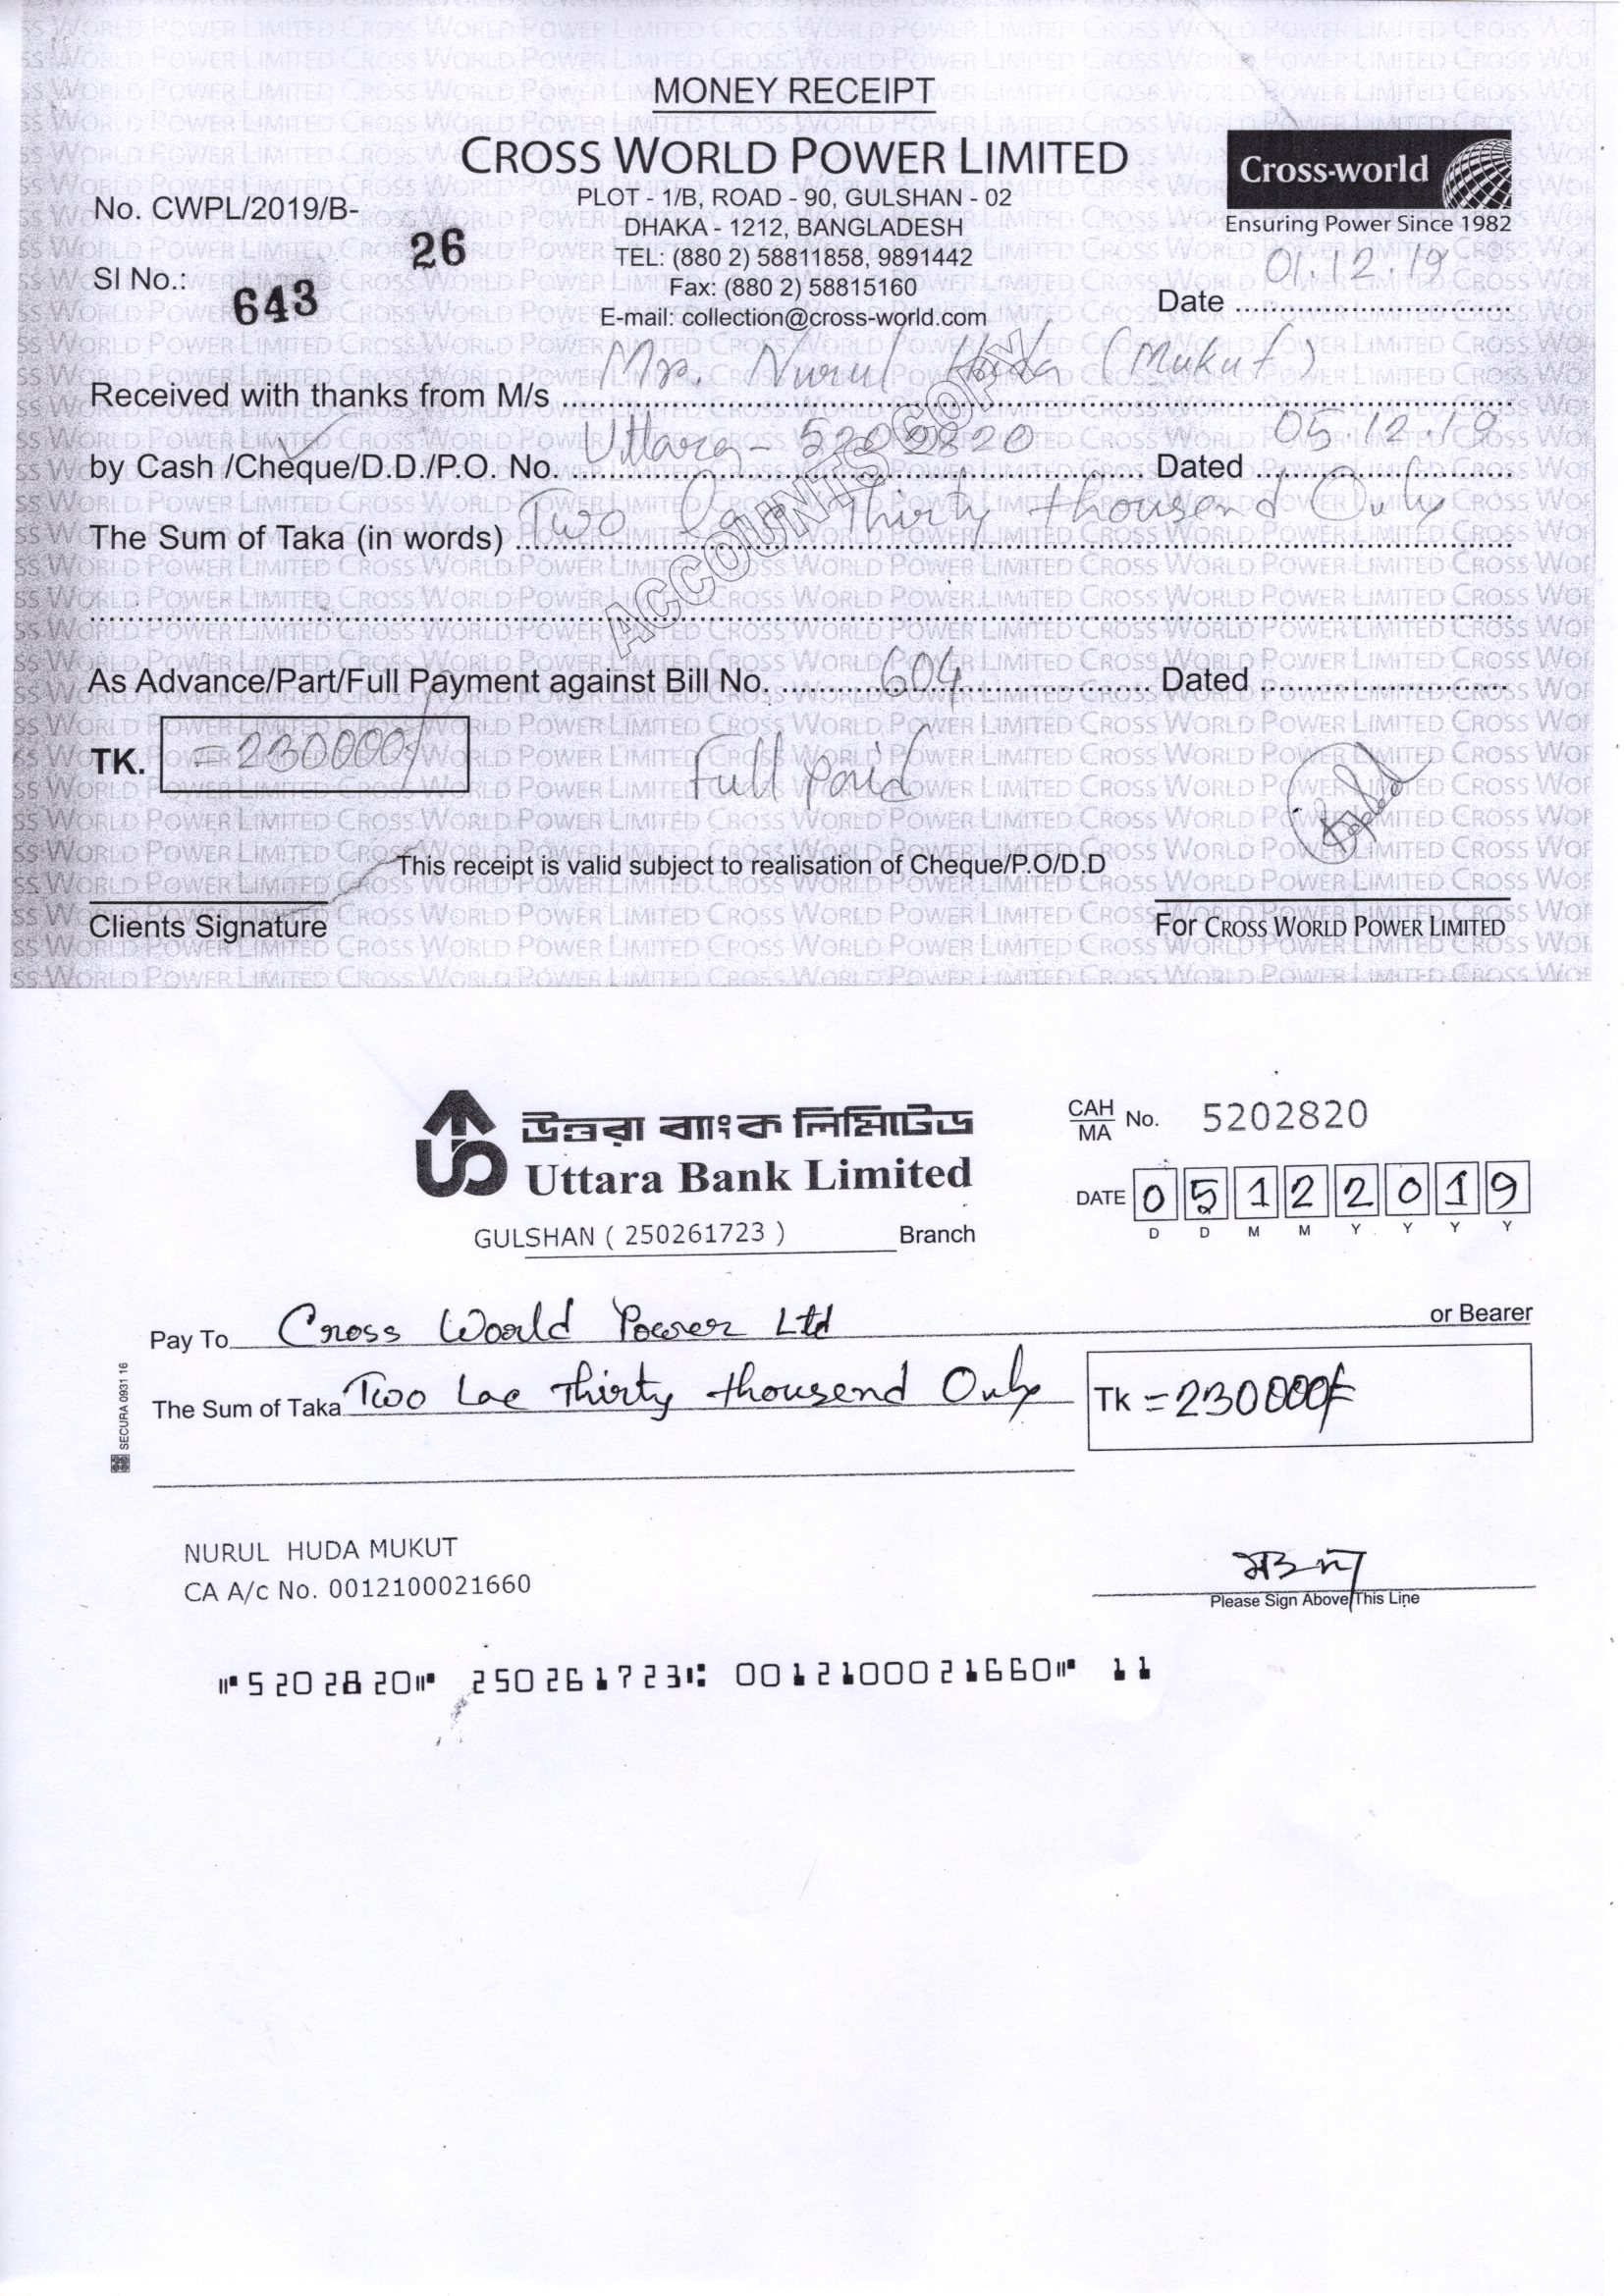 MONEY RECEIPT
CROSS WORLD POWER LIMITED
PLOT - 1/B, ROAD - 90, GULSHAN - 02
DHAKA - 1212, BANGLADESH
TEL: (880 2) 58811858, 9891442
Fax: (880 2) 58815160
E-mail: collection@cross-world.com
Cross-world
Ensuring Power Since 1982
No. CWPL/2019/B- 26
Sl No.: 643
Date 01.12.19
Received with thanks from M/s Mr. Nurul Huda (Mukut)
by Cash /Cheque/D.D./P.O. No. Uttara - 5202820 Dated 05.12.19
The Sum of Taka (in words) Two Lac Thirty thousend Only
ACCOUNTS COPY
As Advance/Part/Full Payment against Bill No. 604 Dated
TK. =230000/
Full Paid
This receipt is valid subject to realisation of Cheque/P.O/D.D
Clients Signature
For CROSS WORLD POWER LIMITED
উত্তরা ব্যাংক লিমিটেড
Uttara Bank Limited
GULSHAN ( 250261723 ) Branch
CAH/MA No. 5202820
DATE 0 5 1 2 2 0 1 9
D D M M Y Y Y Y
Pay To Cross World Power Ltd or Bearer
The Sum of Taka Two Lac Thirty thousend Only
Tk =230000/
SECURA 0931 16
NURUL HUDA MUKUT
CA A/c No. 0012100021660
Please Sign Above This Line
⑈5202820⑈ 250261723⑆ 0012100021660⑈ 11